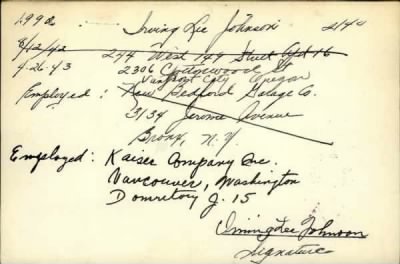 1992 Irving Lee Johnson
8/12/42 244 West 149 Street Apt 16
4-26-43 2306 Cottonwood St
Vanport City Oregon
Employed: New Bedford Garage Co.
Jerome Avenue
Bronx, N.Y.
Employed: Kaiser Company Inc.
Vancouver, Washington
Domretory J. 15
Irving Lee Johnson
Signature